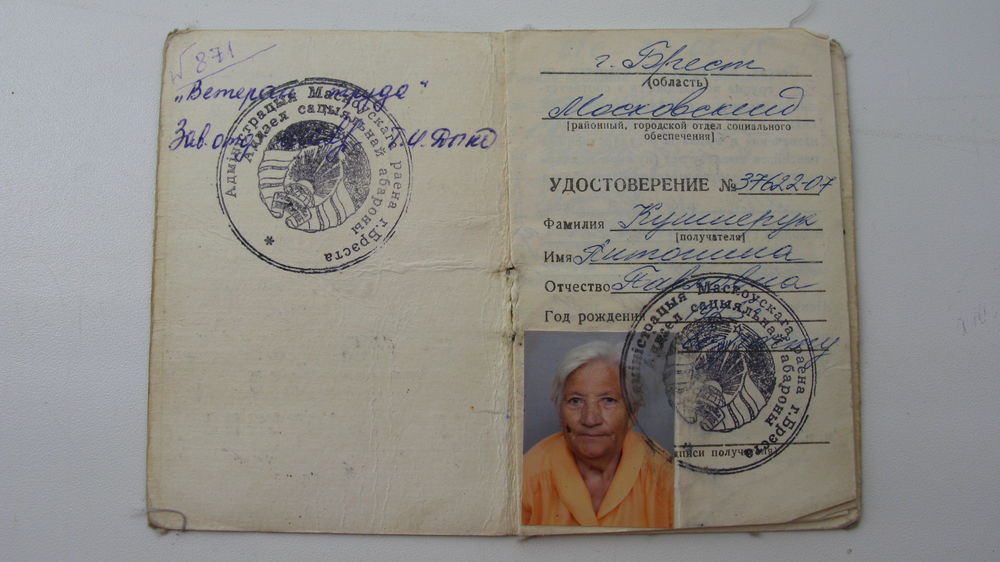 № 871
„Ветеран труда"
Зав. отд.
Адміністрацыя Маскоўскага раена г.Брэста
Аддзел сацыяльнай абароны
*
г. Брест
(область)
Московский
[районный, городской отдел социального
обеспечения]
УДОСТОВЕРЕНИЕ № 37622-07
Фамилия Кушнерук
[получателя]
Имя Антонина
Отчество Павловна
Год рождения
Адміністрацыя Маскоўскага раена г.Брэста
Аддзел сацыяльнай абароны
*
подписи получателя)